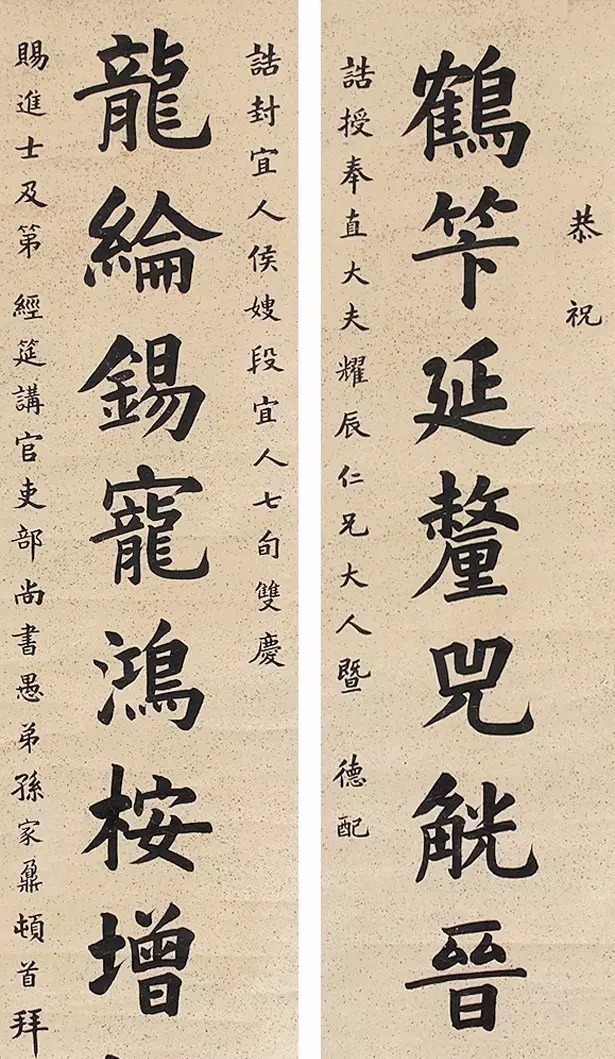 恭祝
鶴笇延釐兕觥晉
誥授奉直大夫耀辰仁兄大人暨 德配
誥封宜人侯嫂段宜人七旬雙慶
龍綸錫寵鴻桉增
賜進士及第 經筵講官吏部尚書愚弟孫家鼐頓首拜